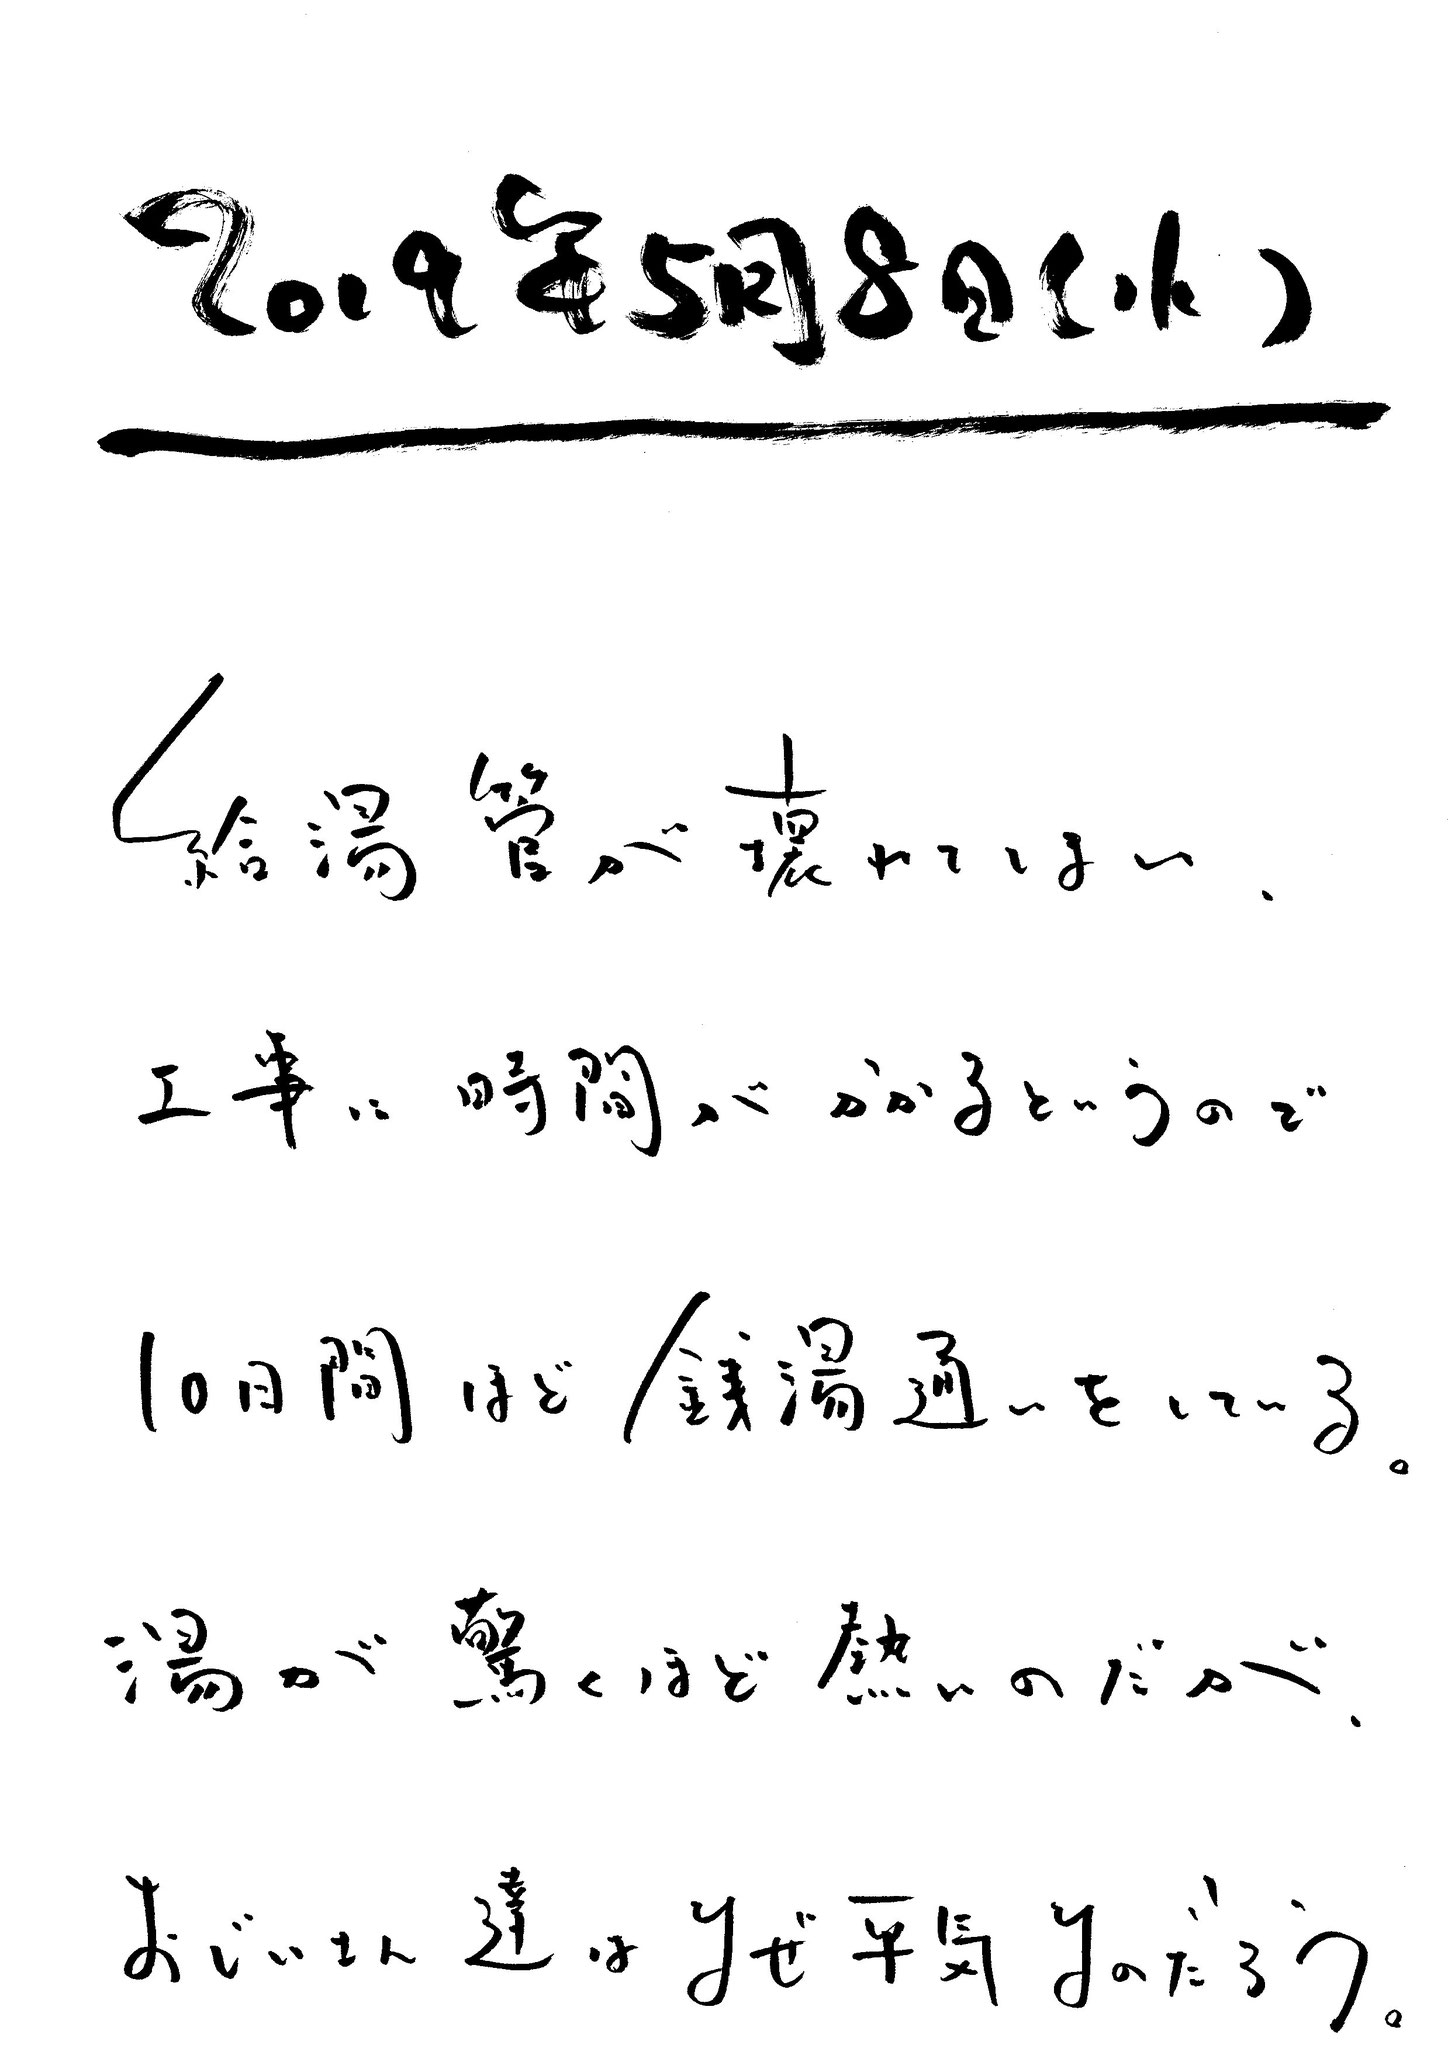 2019年5月8日(水)
給湯管が壊れてしまい、
工事に時間がかかるというので
10日間ほど銭湯通いをしている。
湯が驚くほど熱いのだが、
おじいさん達はなぜ平気なのだろう。